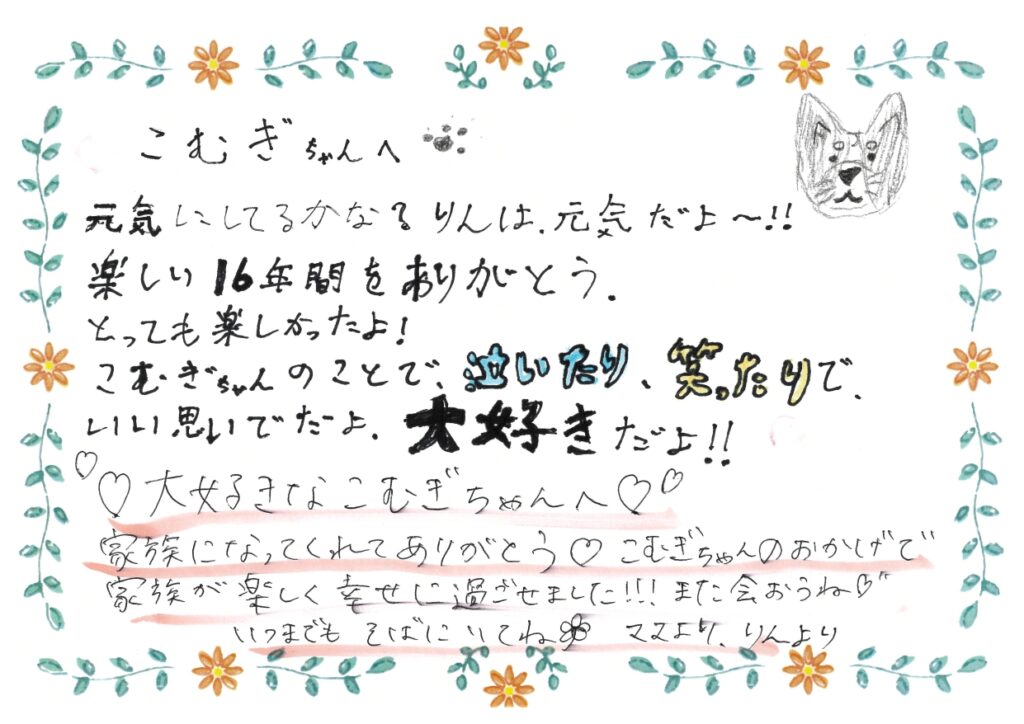 こむぎちゃんへ
元気にしてるかなる りんは、元気だよ〜!!
楽しい16年間をありがとう.
とっても楽しかったよ!
こむぎちゃんのことで、泣いたり、笑ったりで、
いい思いでだよ. 大好きだよ!!
♡♡大好きなこむぎちゃんへ♡♡
家族になってくれてありがとう♡ こむぎちゃんのおかげで
家族が楽しく幸せに過ごせました!!! また会おうね♡
いつまでもそばにいてね ママより、りんより